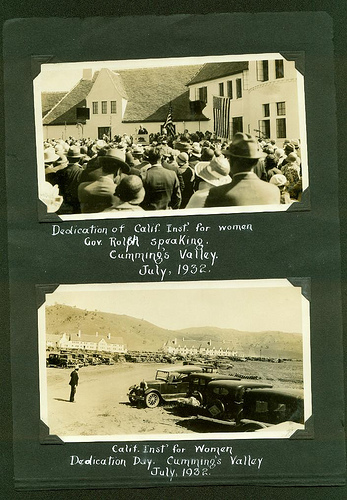 Dedication of Calif. Inst. for women
Gov. Rolph speaking.
Cumming's Valley.
July, 1932.
Calif. Inst for Women
Dedication Day. Cumming's Valley
July, 1932.